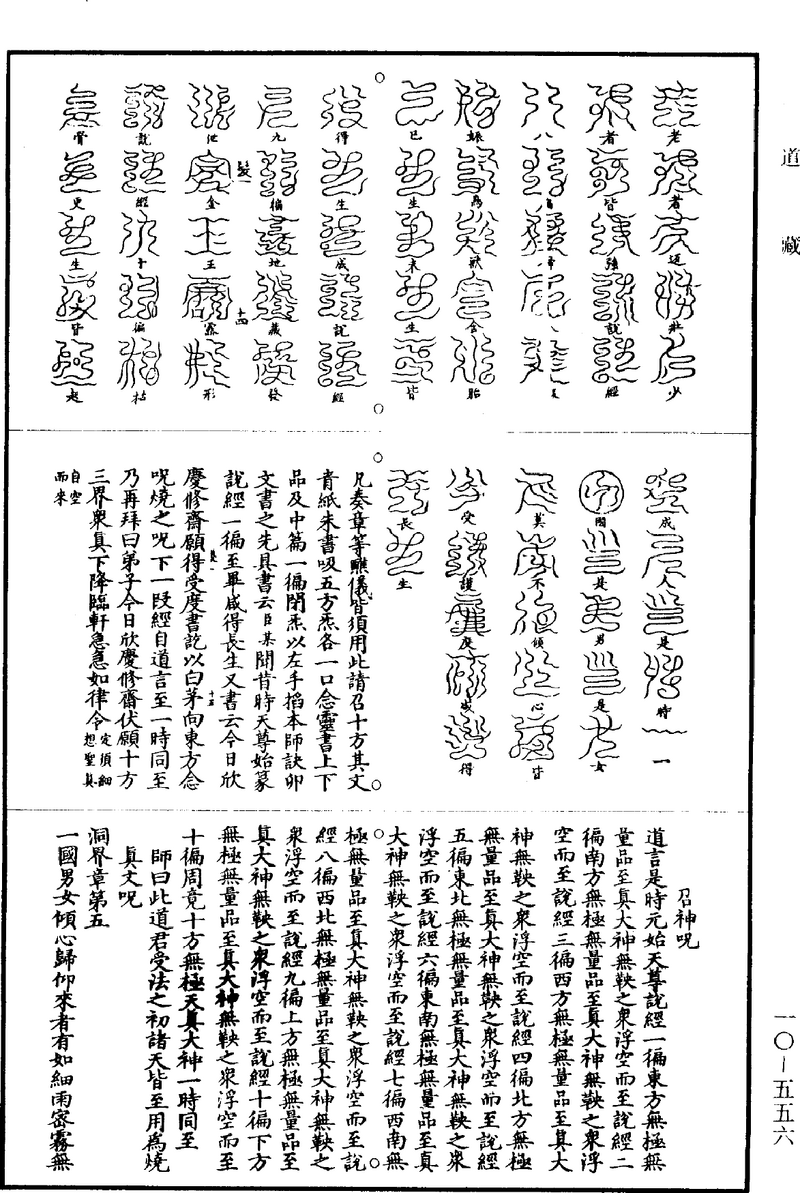 道藏
一〇—五五六
老者返壯少
者皆強說經
八
娠鳥獸含胎
已生未生皆
得生成說經
九徧地藏發
泄金玉露形
說經十徧枯
骨更生皆起
成人是時一
國其男是女
莫不傾心皆
受護度咸得
長生
凡奏章等醮儀皆須用此請召十方其文
青紙朱書吸五方炁各一口念靈書上下
品及中篇一徧閉炁以左手搯本師訣卯
文書之先具書云臣某聞昔時天尊始篆
說經一徧至畢咸得長生又書云今日欣
慶修齋願得受度書訖以白茅向東方念
呪燒之呪下一段經自道言至一時同至
乃再拜曰弟子今日欣慶修齋伏願十方
三界衆真下降臨軒急急如律令定須細想聖真
自空而來
召神呪
道言是時元始天尊說經一徧東方無極無
量品至真大神無鞅之衆浮空而至說經二
徧南方無極無量品至真大神無鞅之衆浮
空而至說經三徧西方無極無量品至真大
神無鞅之衆浮空而至說經四徧北方無極
無量品至真大神無鞅之衆浮空而至說經
五徧東北無極無量品至真大神無鞅之衆
浮空而至說經六徧東南無極無量品至真
大神無鞅之衆浮空而至說經七徧西南無
極無量品至真大神無鞅之衆浮空而至說
經八徧西北無極無量品至真大神無鞅之
衆浮空而至說經九徧上方無極無量品至
真大神無鞅之衆浮空而至說經十徧下方
無極無量品至真大神無鞅之衆浮空而至
十徧周竟十方無極天真大神一時同至
師曰此道君受法之初諸天皆至用爲燒
真文呪
洞界章第五
一國男女傾心歸仰來者有如細雨密霧無